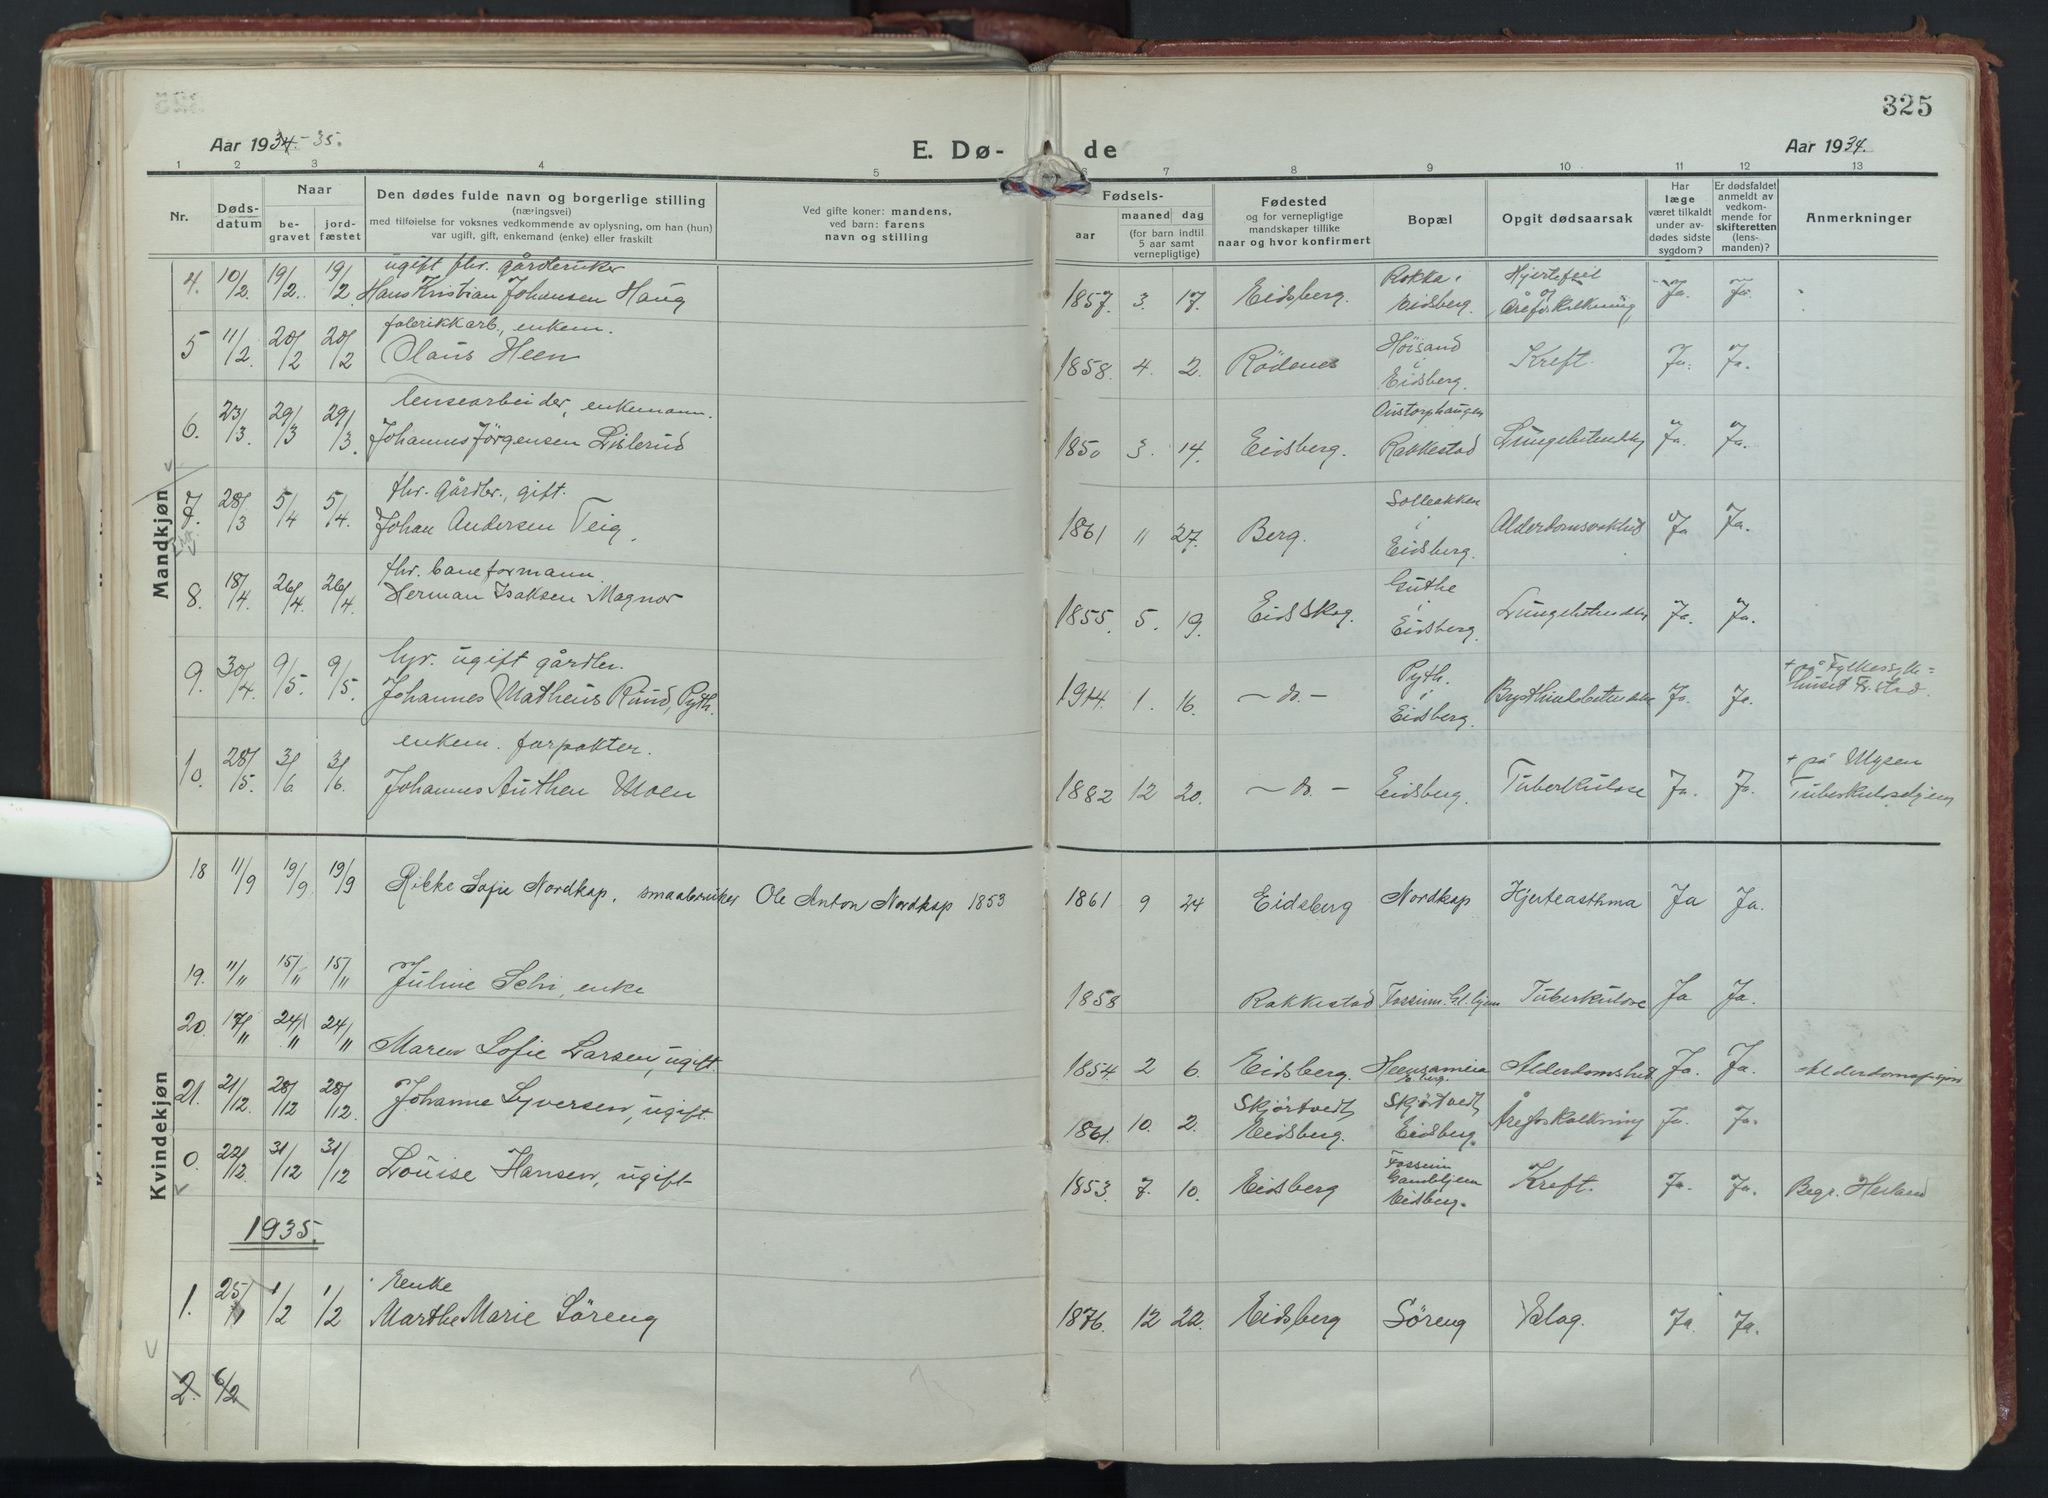 325
Aar 1934.-35.
E. Dø- de
Aar 1934.
1 2 3 4 5 6 7 8 9 10 11 12 13
Nr.
Døds-
datum
Naar
be-
gravet
jord-
fæstet
Den dødes fulde navn og borgerlige stilling
(næringsvei)
med tilføielse for voksnes vedkommende av oplysning, om han (hun)
var ugift, gift, enkemand (enke) eller fraskilt
Ved gifte koner: mandens,
ved barn: farens
navn og stilling
Fødsels-
aar
maaned
dag
(for barn indtil
5 aar samt
vernepligtige)
Fødested
og for vernepligtige
mandskaper tillike
naar og hvor konfirmert
Bopæl
Opgit dødsaarsak
Har
læge
været tilkaldt
under av-
dødes sidste
sygdom?
Er dødsfaldet
anmeldt av
vedkom-
mende for
skifteretten
(lens-
manden)?
Anmerkninger
Mandkjøn
ugift fhv. gårdbruker Rakka i Hjertefeil
4. 10/2. 19/2. 19/2 Hans Kristian Johansen Haug 1857. 3. 17. Eidsberg. Eidsberg. og Åreforkalkning Ja. Ja.
fabrikkarb., enkem. Höisand
5 11/2 20/2 20/2 Olaus Heen 1858. 4. 2. Rödenes i Eidsberg. Kreft. Ja. Ja.
lensearbeider, enkemann.
6. 23/3. 29/3 29/3. Johannes Jörgensen Lislerud 1850 3. 14. Eidsberg. Rakkestad Ja. Ja.
fhv. gårdbr., gift. Solbakken
7. 28/3 5/4 5/4. Johan Andersen Teig, 1861 11 27. Berg. i Eidsberg. Ja Ja.
fhv. baneformann Guthe
8. 18/4. 26/4. 26/4. Herman Isaksen Magnor 1855. 5. 19. Eidskog. i Eidsberg. Ja. Ja.
ugift gårdbr. Pyth. + på Fylkessyke=
9. 30/4 9/5. 9/5. Johannes Matheus Rund, Pyth. 1914. 1. 16. — do. — i Eidsberg. Ja. Ja. huset Fr.stad.
enkem. forpakter. + på Mysen
10. 28/5. 3/6 3/6. Johannes Authen Moen 1882 12 20. — do. — Eidsberg. Tuberkulose Ja. Ja. Tuberkulosehjem
Kvindekjøn
18 11/9 19/9 19/9 Rikke Sofie Nordkap, smaabruker Ole Anton Nordkap 1853 1861 9 24 Eidsberg Nordkap Hjerteasthma Ja Ja.
19. 11/11 15/11 15/11 Juline enke 1858 Rakkestad Fossum Gl.hjem Tuberkulose Ja Ja.
20. 17/11 24/11 24/11 Maren Sofie Larsen, ugift 1854. 2 6. Eidsberg. Ja. Ja.
Skjörtvedt, Skjörtvedt,
21. 21/12. 28/12 28/12. Johanne Syversen, ugift. 1861. 10. 2. Eidsberg. Eidsberg. Åreforkalkning Ja. Ja.
Fossum
0. 22/12. 31/12 31/12 Louise Hansen, ugift 1853. 7. 10. Eidsberg Gamlehjem Eidsberg. Kreft. Ja. Ja. Begr.
1935.
Eenke
1. 25/ 1/2 1/2 Marthe Marie Söreng 1876. 12 22. Eidsberg Söreng Slag. Ja. Ja.
2. 6/2